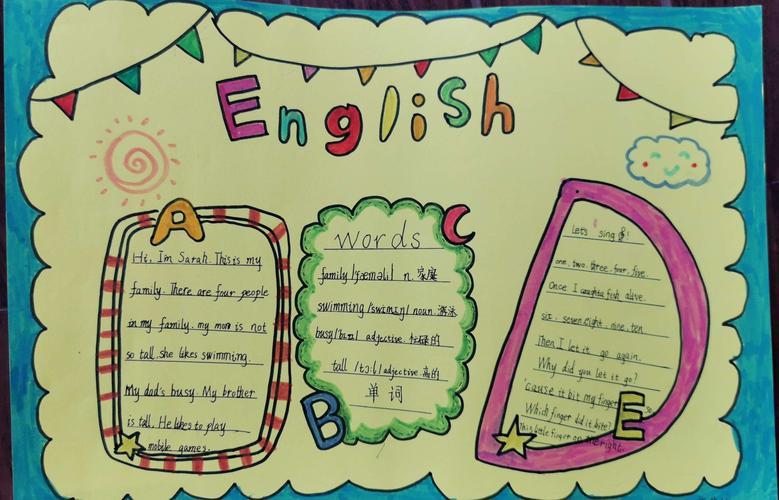 English
A
Hi, I'm Sarah. This is my
family. There are four people
in my family. my mom is not
so tall. she likes swimming.
My dad's busy. My brother
is tall. He likes to play
mobile games.
B
C
words
family /ˈfæməli/ n. 家庭
swimming /swɪmɪŋ/ noun 游泳
busy /bɪzɪ/ adjective 忙碌的
tall /tɔ:l/ adjective 高的
单词
Let's sing!
one. two. three. four. five.
Once I caught a fish alive.
six. seven. eight. nine. ten
Then I let it go again.
Why did you let it go?
'cause it bit my finger so
Which finger did it bite?
This little finger on the right.
E